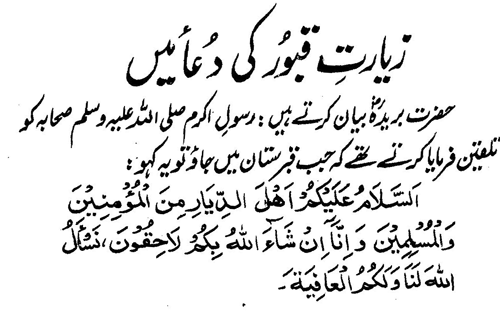 زیارتِ قبُور کی دُعائیں
حضرت بریدہؓ بیان کرتے ہیں: رسولِ اکرم صلی اللہ علیہ وسلم صحابہ کو
تلقین فرمایا کرتے تھے کہ جب قبرستان میں جاؤ تو یہ کہو:
اَلسَّلَامُ عَلَيْكُمْ اَهْلَ الدِّيَارِ مِنَ الْمُؤْمِنِيْنَ
وَالْمُسْلِمِيْنَ وَاِنَّا اِنْ شَاءَ اللهُ بِكُمْ لَاحِقُوْنَ، نَسْأَلُ
اللهَ لَنَا وَلَكُمُ الْعَافِيَةَ۔